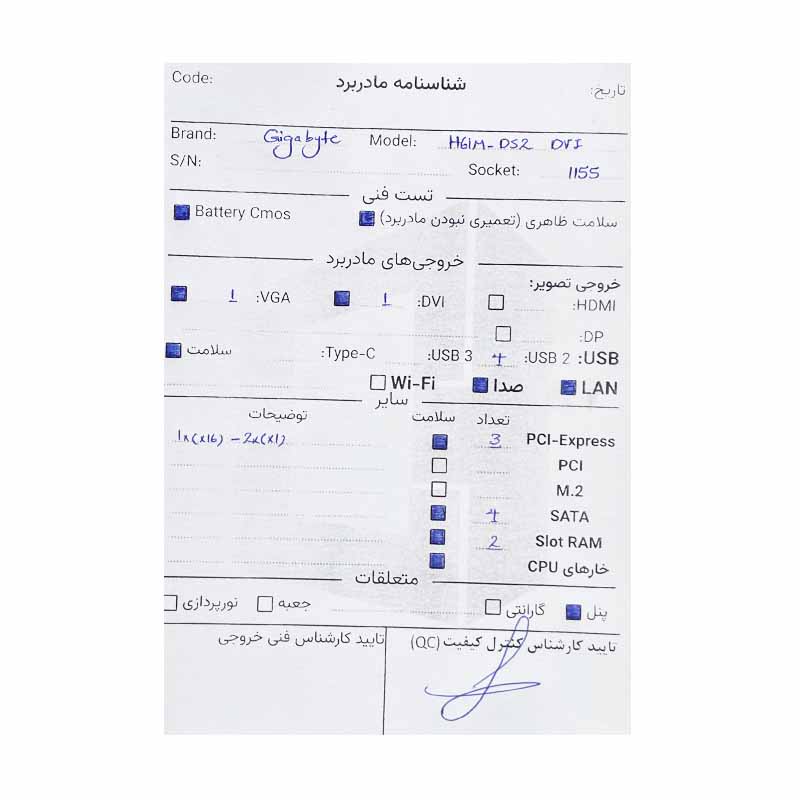 Code: شناسنامه مادربرد تاریخ:
Brand: Gigabyte Model: H61M-DS2 DVI
S/N: Socket: 1155
تست فنی
سلامت ظاهری (تعمیری نبودن مادربرد) Battery Cmos
خروجی‌های مادربرد
خروجی تصویر:
HDMI: DVI: 1 VGA: 1
DP:
USB: USB 2: 4 USB 3: Type-C: سلامت
LAN صدا Wi-Fi
سایر
تعداد سلامت توضیحات
PCI-Express 3 1x(x16) - 2x(x1)
PCI
M.2
SATA 4
Slot RAM 2
خارهای CPU
متعلقات
پنل گارانتی جعبه نورپردازی
تایید کارشناس کنترل کیفیت (QC) تایید کارشناس فنی خروجی